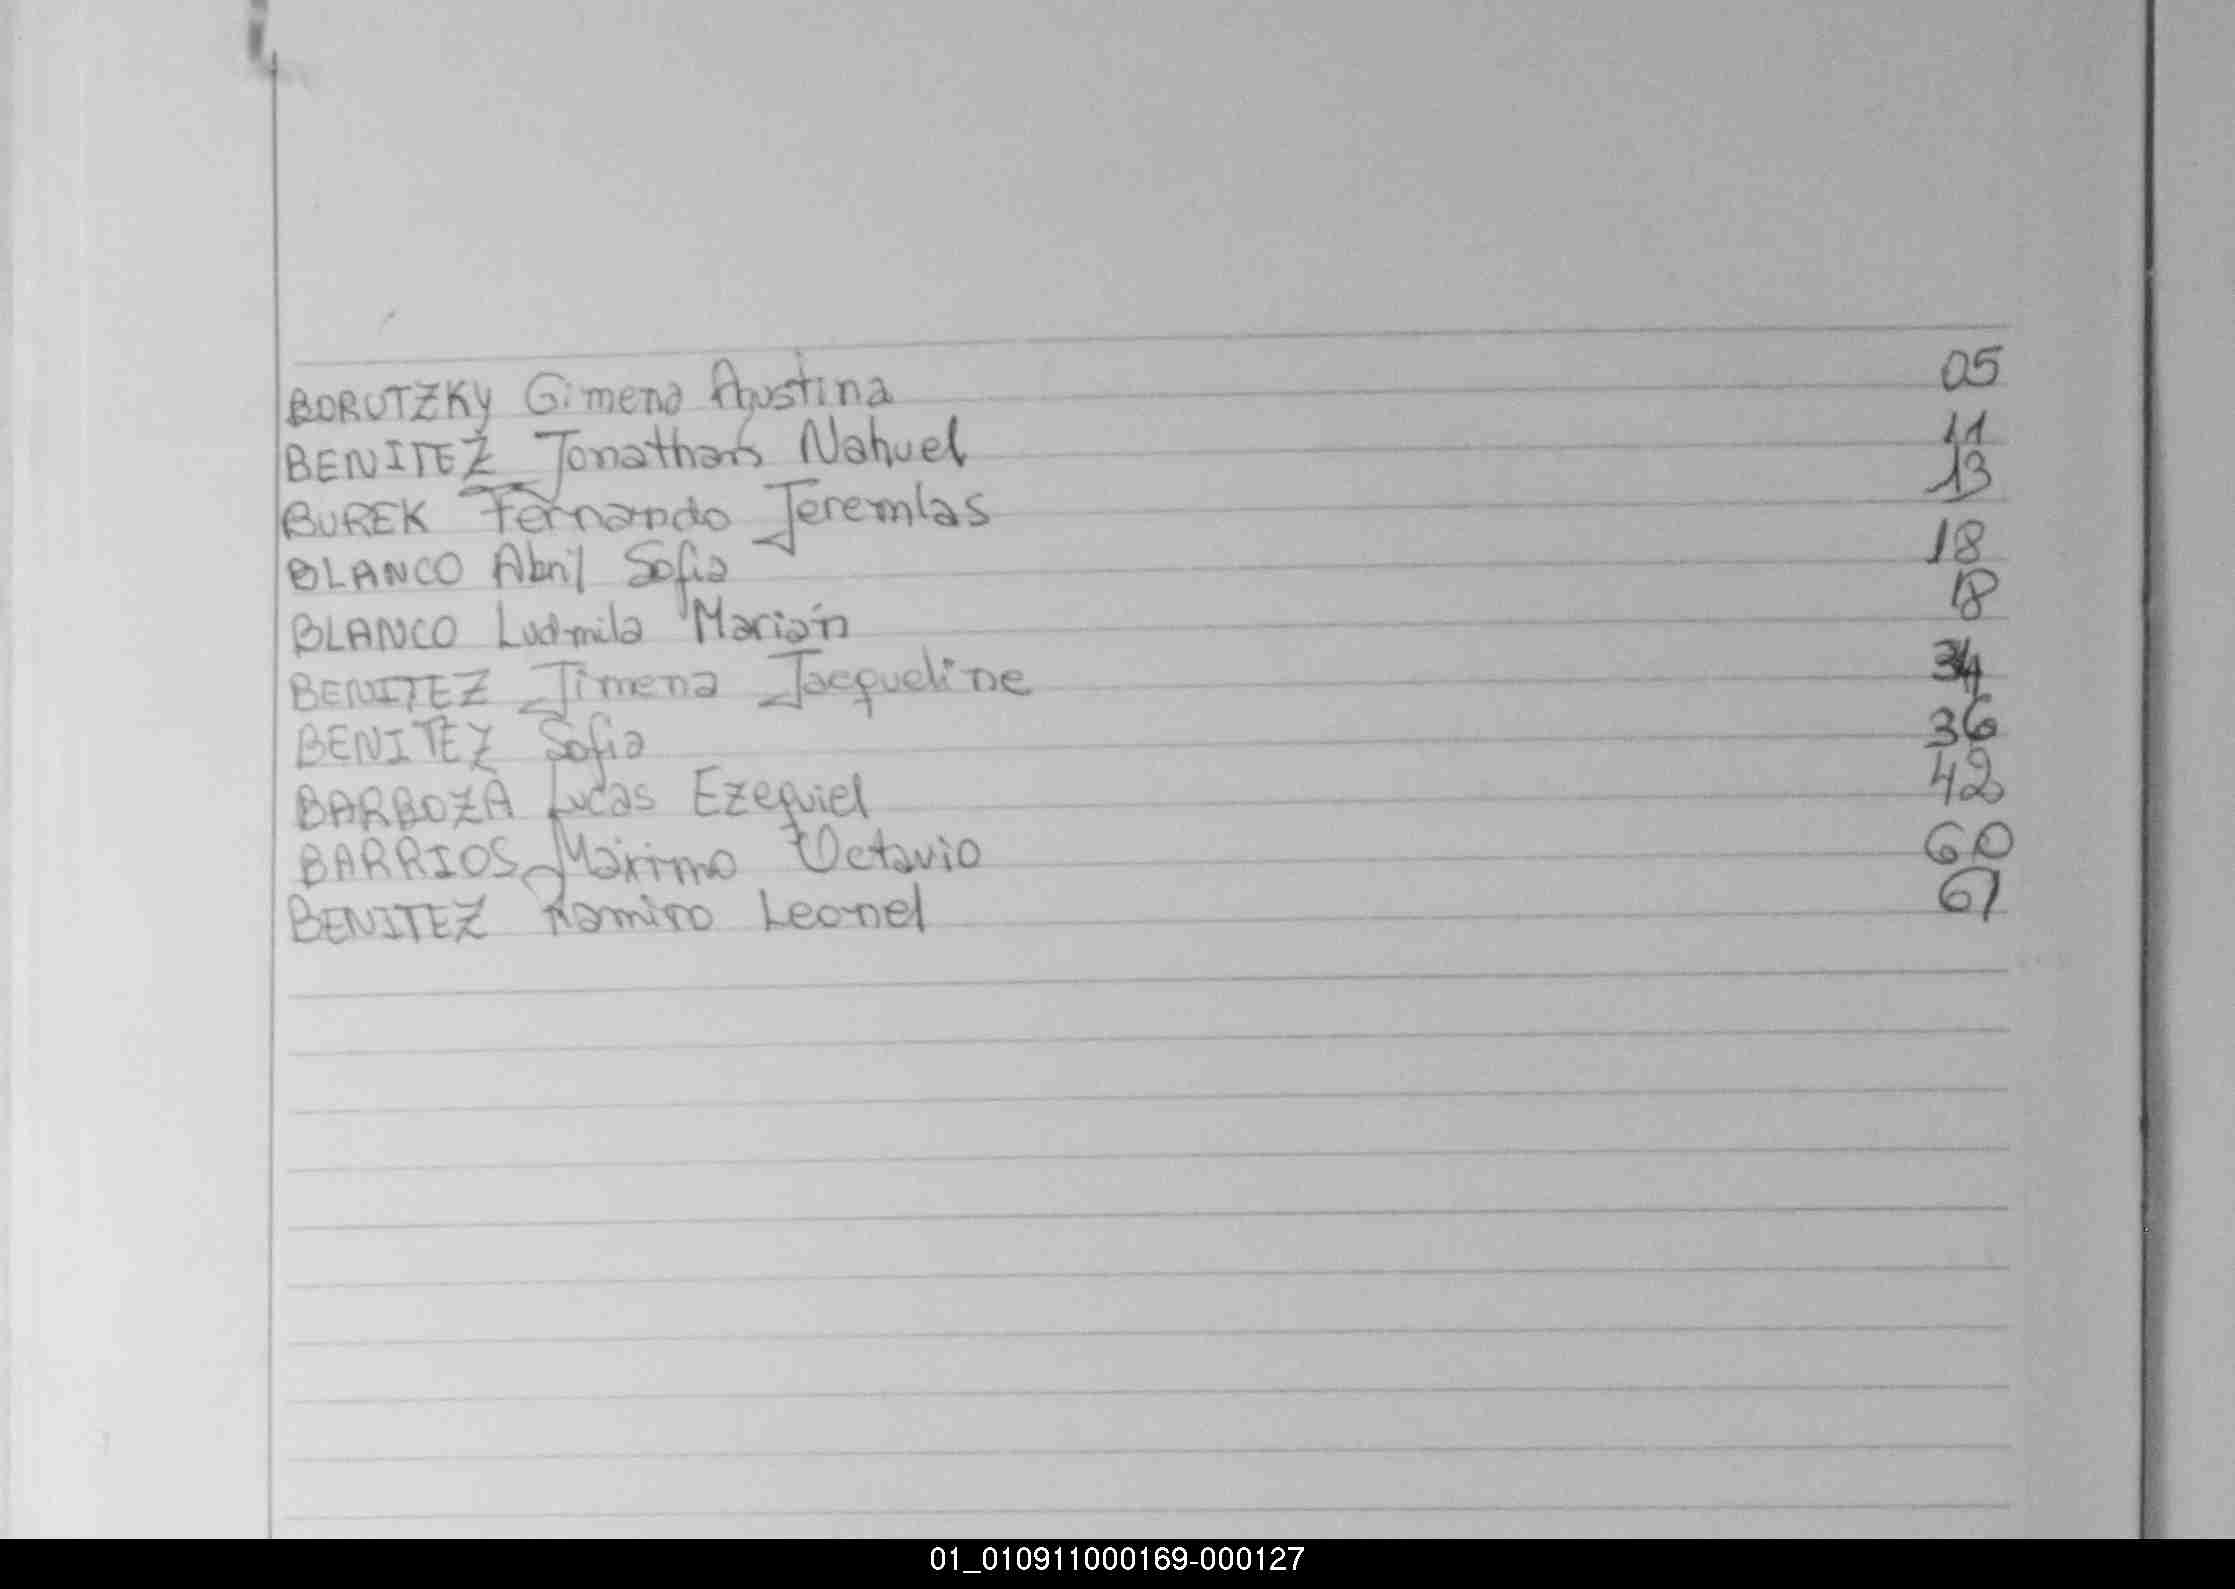 BORUTZKY Gimena Agustina 05
BENITEZ Jonathan Nahuel 11
BUREK Fernando Jeremías 13
BLANCO Abril Sofia 18
BLANCO Ludmila Marián 18
BENITEZ Jimena Jacqueline 34
BENITEZ Sofia 36
BARBOZA Lucas Ezequiel 42
BARRIOS Máximo Octavio 60
BENITEZ Ramiro Leonel 61
01_010911000169-000127